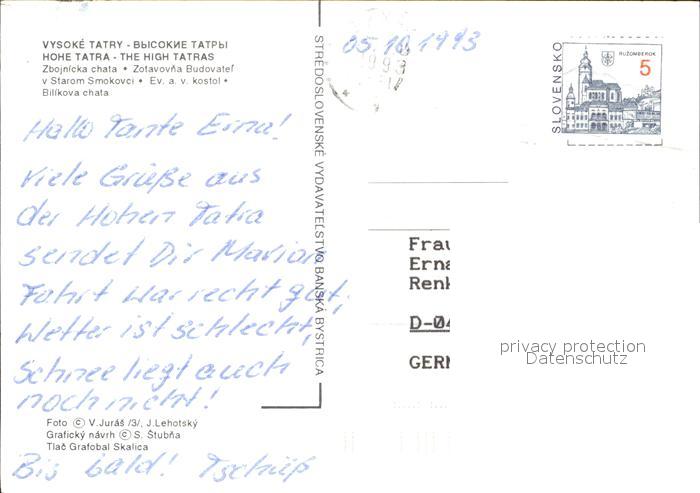 VYSOKÉ TATRY - ВЫСОКИЕ ТАТРЫ
HOHE TATRA - THE HIGH TATRAS
Zbojnícka chata • Zotavovňa Budovateľ
v Starom Smokovci • Ev. a. v. kostol •
Bilíkova chata
Hallo Tante Erna!
Viele Grüße aus
der Hohen Tatra
sendet Dir Marion
Fahrt war recht gut,
Wetter ist schlecht,
Schnee liegt auch
noch nicht!
Foto © V.Juráš /3/, J.Lehotský
Grafický návrh © S. Štubňa
Tlač Grafobal Skalica
Bis bald! Tschüß
STREDOSLOVENSKÉ VYDAVATEĽSTVO BANSKÁ BYSTRICA
05.10.1993
SLOVENSKO
RUŽOMBEROK
5
Frau
Erna
Renk
D-04
GERM
privacy protection
Datenschutz